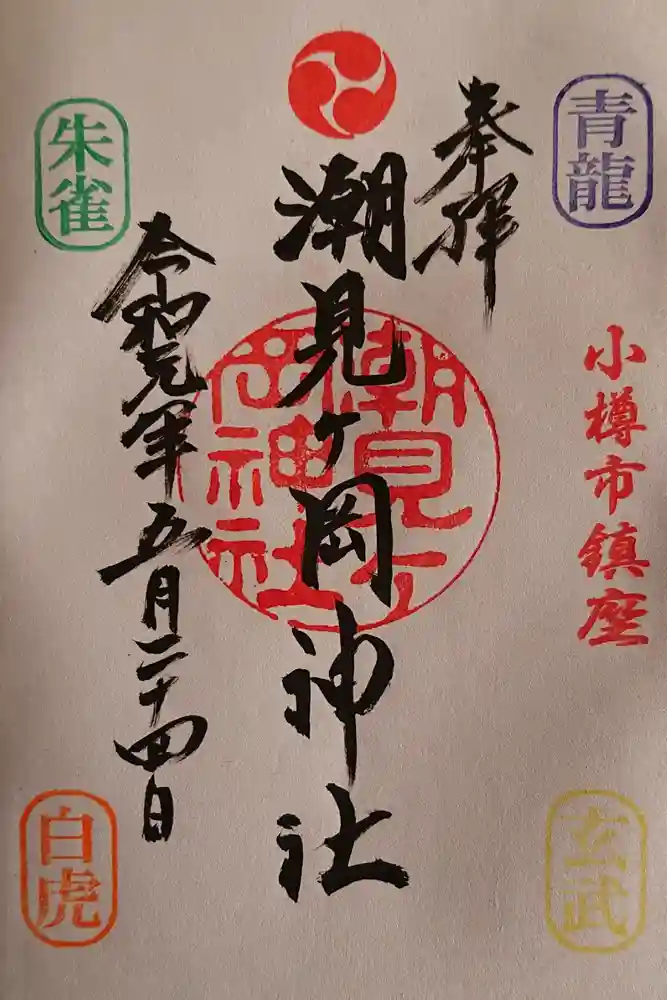 青龍
奉拝
小樽市鎮座
潮見ヶ岡神社
潮見ヶ岡神社
朱雀
令和元年五月二十四日
玄武
白虎